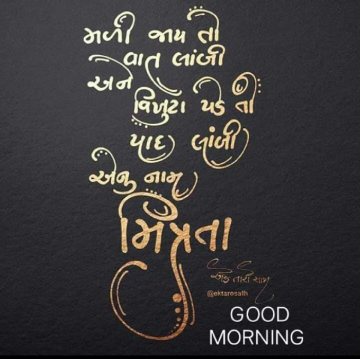 મળી જાય તો
વાત લાંબી
અને
વિખુટા પડે તો
યાદ લાંબી
એનુ નામ
મિત્રતા
એક તારો સાથ
@ektaresath
GOOD
MORNING